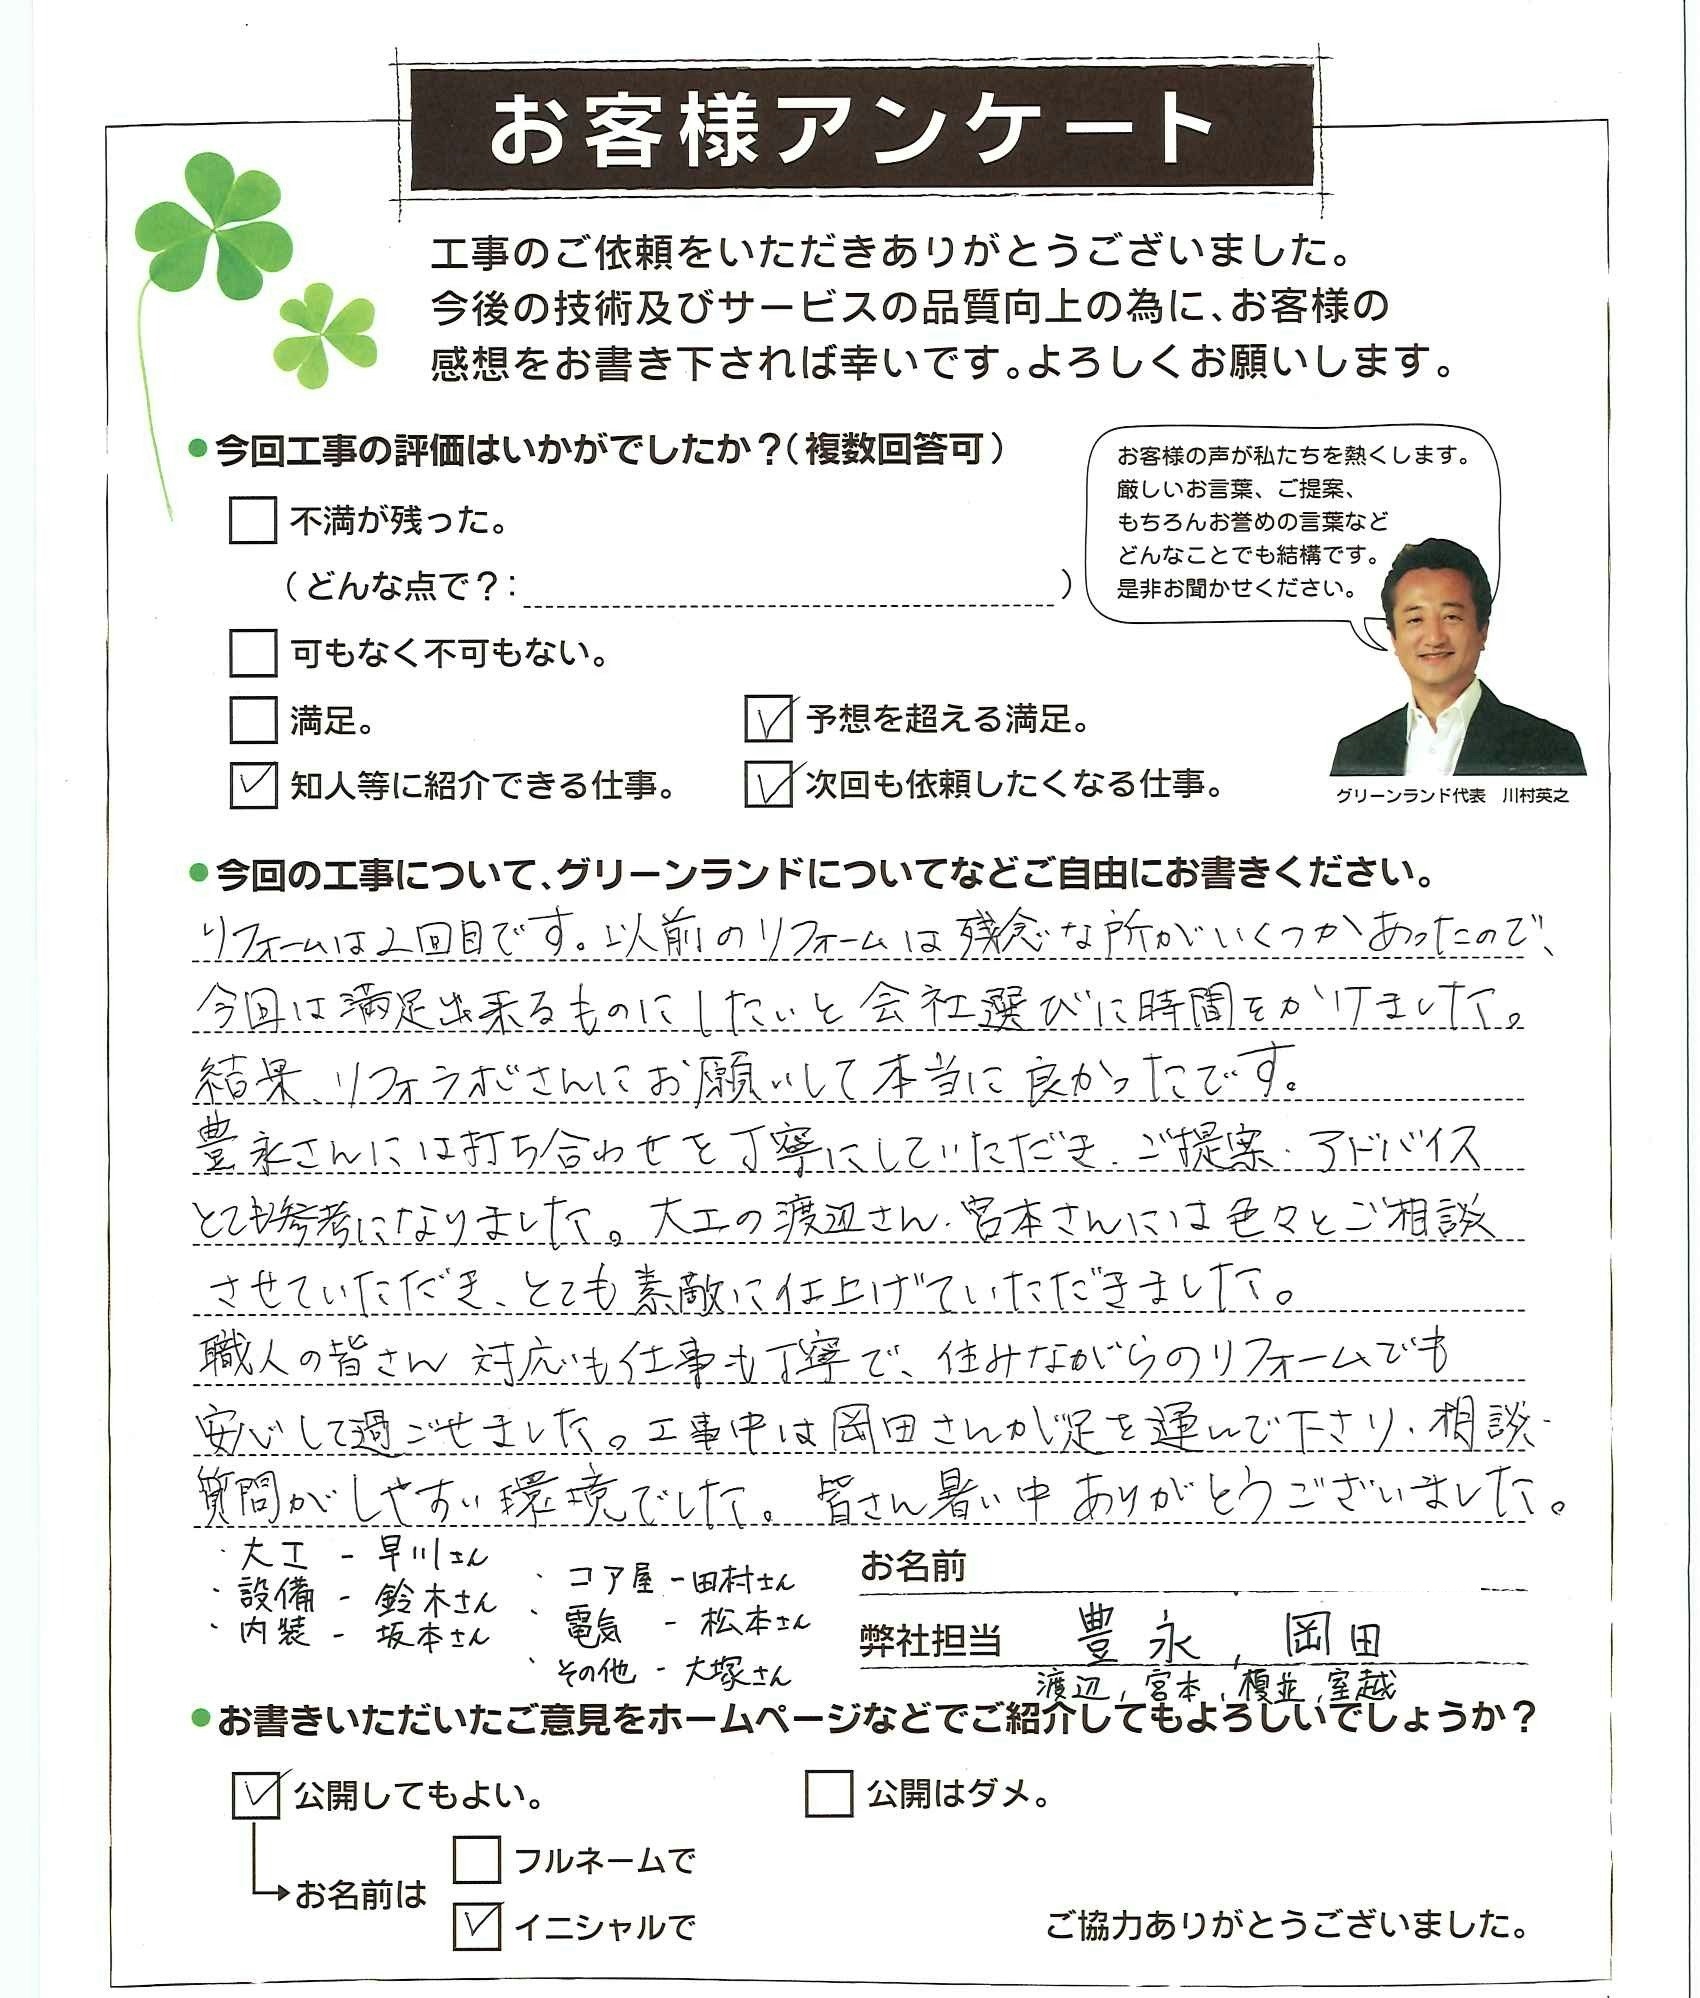 お客様アンケート
工事のご依頼をいただきありがとうございました。
今後の技術及びサービスの品質向上の為に、お客様の
感想をお書き下されば幸いです。よろしくお願いします。
●今回工事の評価はいかがでしたか？（複数回答可）
不満が残った。
（どんな点で？： ）
可もなく不可もない。
満足。
予想を超える満足。
知人等に紹介できる仕事。
次回も依頼したくなる仕事。
お客様の声が私たちを熱くします。
厳しいお言葉、ご提案、
もちろんお誉めの言葉など
どんなことでも結構です。
是非お聞かせください。
グリーンランド代表 川村英之
●今回の工事について、グリーンランドについてなどご自由にお書きください。
リフォームは2回目です。以前のリフォームは残念な所がいくつかあったので、
今回は満足出来るものにしたいと会社選びに時間をかけました。
結果、リフォラボさんにお願いして本当に良かったです。
豊永さんには打ち合わせを丁寧にしていただき、ご提案・アドバイス
とても参考になりました。大工の渡辺さん、宮本さんには色々とご相談
させていただき、とても素敵に仕上げていただきました。
職人の皆さん 対応も仕事も丁寧で、住みながらのリフォームでも
安心して過ごせました。工事中は岡田さんが足を運んで下さり、相談・
質問がしやすい環境でした。皆さん暑い中ありがとうございました。
・大工 - 早川さん
・設備 - 鈴木さん
・内装 - 坂本さん
・コア屋 - 田村さん
・電気 - 松本さん
・その他 - 大塚さん
お名前
弊社担当 豊永、岡田
渡辺、宮本、榎並、室越
●お書きいただいたご意見をホームページなどでご紹介してもよろしいでしょうか？
公開してもよい。
公開はダメ。
お名前は
フルネームで
イニシャルで
ご協力ありがとうございました。